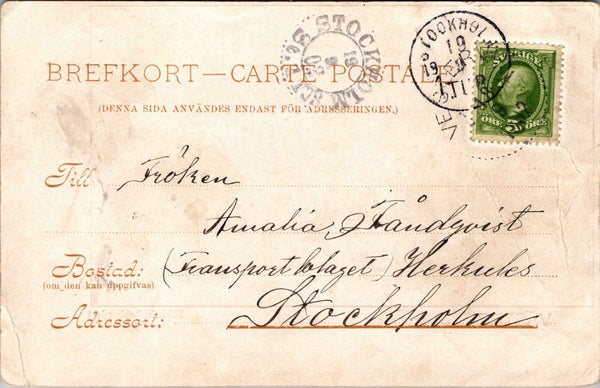 BREFKORT—CARTE POSTALE
STOCKHOLM
19
SVERIGE
5
ÖRE ÖRE
(DENNA SIDA ANVÄNDES ENDAST FÖR ADRESSERINGEN.)
Till Fröken
Amalia Sandqvist
Bostad: (Transportbolaget) Herkules
(om den kan uppgifvas)
Adressort: Stockholm